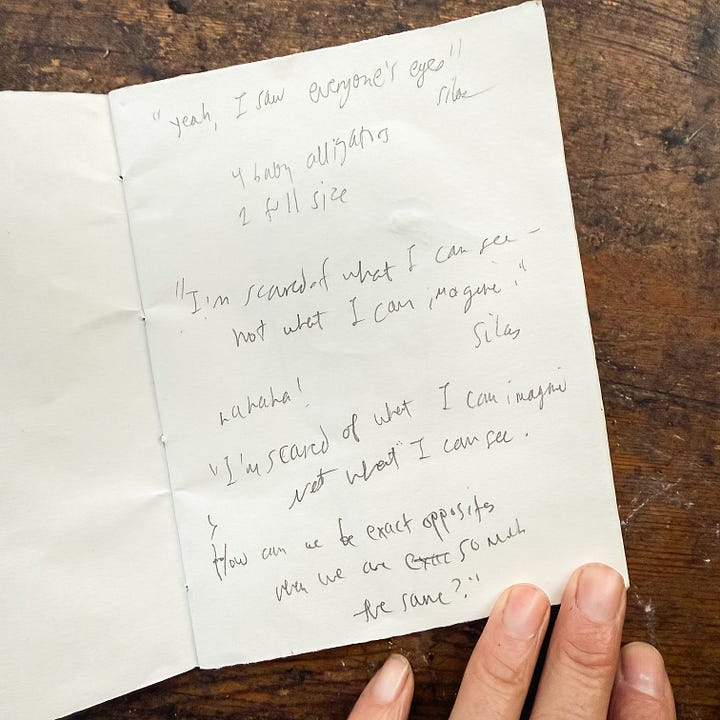 "yeah, I saw everyone's eyes"
Silas
4 baby alligators
2 full size
"I'm scared of what I can see -
not what I can imagine."
Silas
hahaha!
"I'm scared of what I can imagine
not what I can see.
How can we be exact opposites
when we are so much
the same?"